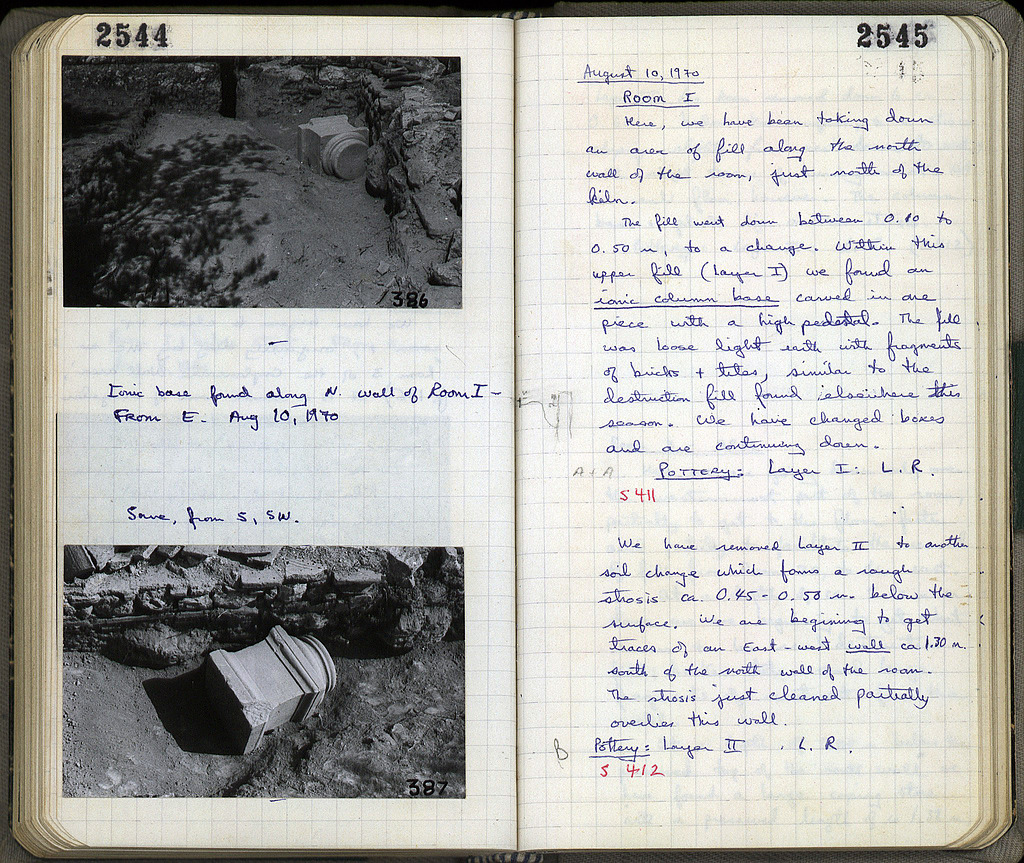 2544
386
Ionic base found along N. wall of Room I –
From E. Aug 10, 1970
Same, from S, SW.
387
2545
August 10, 1970
Room I
Here, we have been taking down
an area of fill along the north
wall of the room, just north of the
kiln.
The fill went down between 0.10 to
0.50 m, to a change. Within this
upper fill (Layer I) we found an
ionic column base carved in one
piece with a high pedestal. The fill
was loose light earth with fragments
of bricks + tiles, similar to the
destruction fill found elsewhere this
season. We have changed boxes
and are continuing down.
A + A Pottery: Layer I: L. R.
S 411
We have removed Layer II to another
soil change which forms a rough
strosis ca. 0.45 - 0.50 m. below the
surface. We are begining to get
traces of an East-west wall ca 1.30 m.
south of the north wall of the room.
The strosis just cleaned partially
overlies this wall.
B Pottery: Layer II . L. R.
S 412